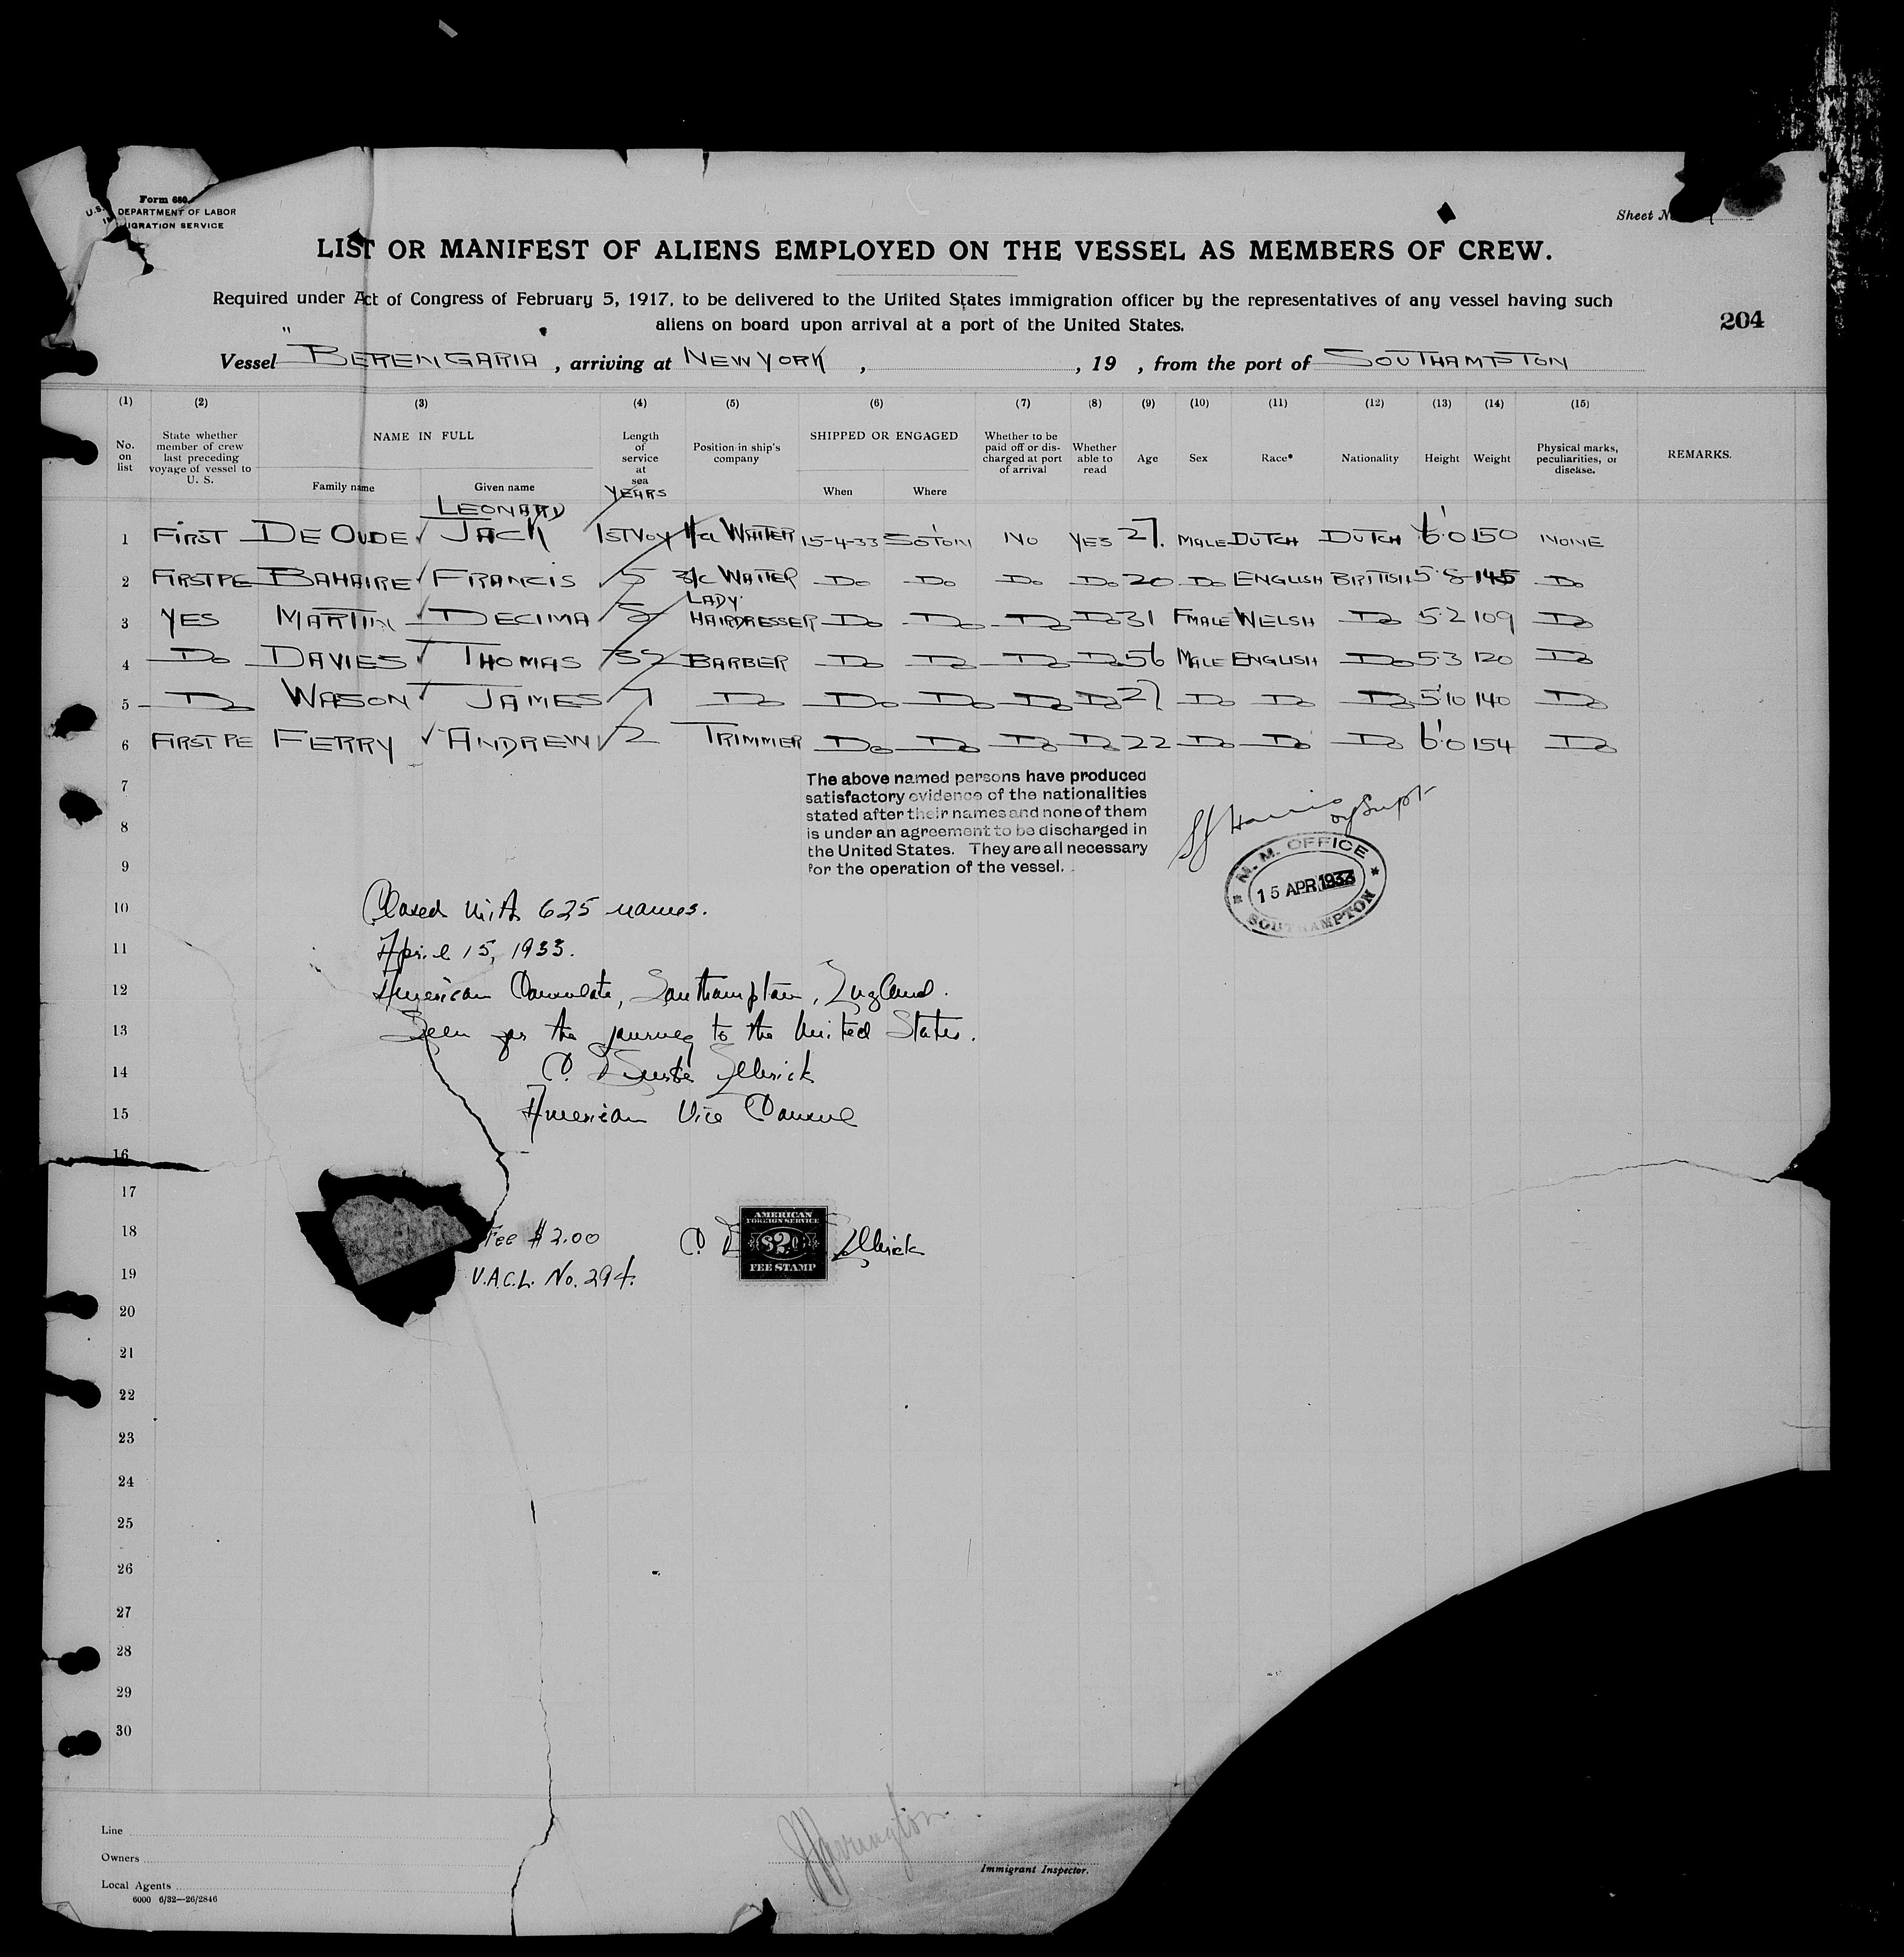 Form 680
U.S. DEPARTMENT OF LABOR
IGRATION SERVICE
Sheet N
LIST OR MANIFEST OF ALIENS EMPLOYED ON THE VESSEL AS MEMBERS OF CREW.
Required under Act of Congress of February 5, 1917, to be delivered to the United States immigration officer by the representatives of any vessel having such
aliens on board upon arrival at a port of the United States.
204
Vessel "BERENGARIA, arriving at NEW YORK, , 19 , from the port of SOUTHAMPTON
(1) (2) (3) (4) (5) (6) (7) (8) (9) (10) (11) (12) (13) (14) (15)
No. on list
State whether member of crew last preceding voyage of vessel to U. S.
NAME IN FULL
Family name Given name
Length of service at sea
YEARS
Position in ship's company
SHIPPED OR ENGAGED
When Where
Whether to be paid off or discharged at port of arrival
Whether able to read
Age Sex Race* Nationality Height Weight
Physical marks, peculiarities, or disease.
REMARKS.
LEONARD
1 FIRST DE OUDE JACK 1ST VOY WAITER 15-4-33 SOTON NO YES 27. MALE DUTCH DUTCH 6'0 150 NONE
2 FIRST PE BAHAIRE FRANCIS 5 3/C WAITER DO DO DO DO 20 DO ENGLISH BRITISH 5.8 145 DO
3 YES MARTIN DECIMA 5 LADY HAIRDRESSER DO DO DO DO 31 FMALE WELSH DO 5.2 109 DO
4 DO DAVIES THOMAS 32 BARBER DO DO DO DO 56 MALE ENGLISH DO 5.3 120 DO
5 DO WASON JAMES 7 DO DO DO DO DO 27 DO DO DO 5'10 140 DO
6 FIRST PE FERRY ANDREW 2 TRIMMER DO DO DO DO 22 DO DO DO 6'0 154 DO
The above named persons have produced
satisfactory evidence of the nationalities
stated after their names and none of them
is under an agreement to be discharged in
the United States. They are all necessary
for the operation of the vessel.
M. M. OFFICE
15 APR 1933
SOUTHAMPTON
7
8
9
10 Closed with 625 names.
11 April 15, 1933.
12 American Consulate, Southampton, England.
13 Seen for the journey to the United States.
14 C.
15 American Vice Consul
16
17
18 Fee $2.00
AMERICAN
FOREIGN SERVICE
$2.0
FEE STAMP
19 V.A.C.L. No. 294.
20
21
22
23
24
25
26
27
28
29
30
Line
Owners
Local Agents
6000 6/32—26/2846
Immigrant Inspector.